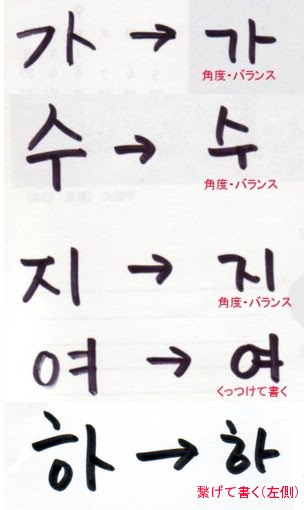 가 → 가
角度・バランス
수 → 수
角度・バランス
지 → 지
角度・バランス
여 → 여
くっつけて書く
하 → 하
繋げて書く(左側)